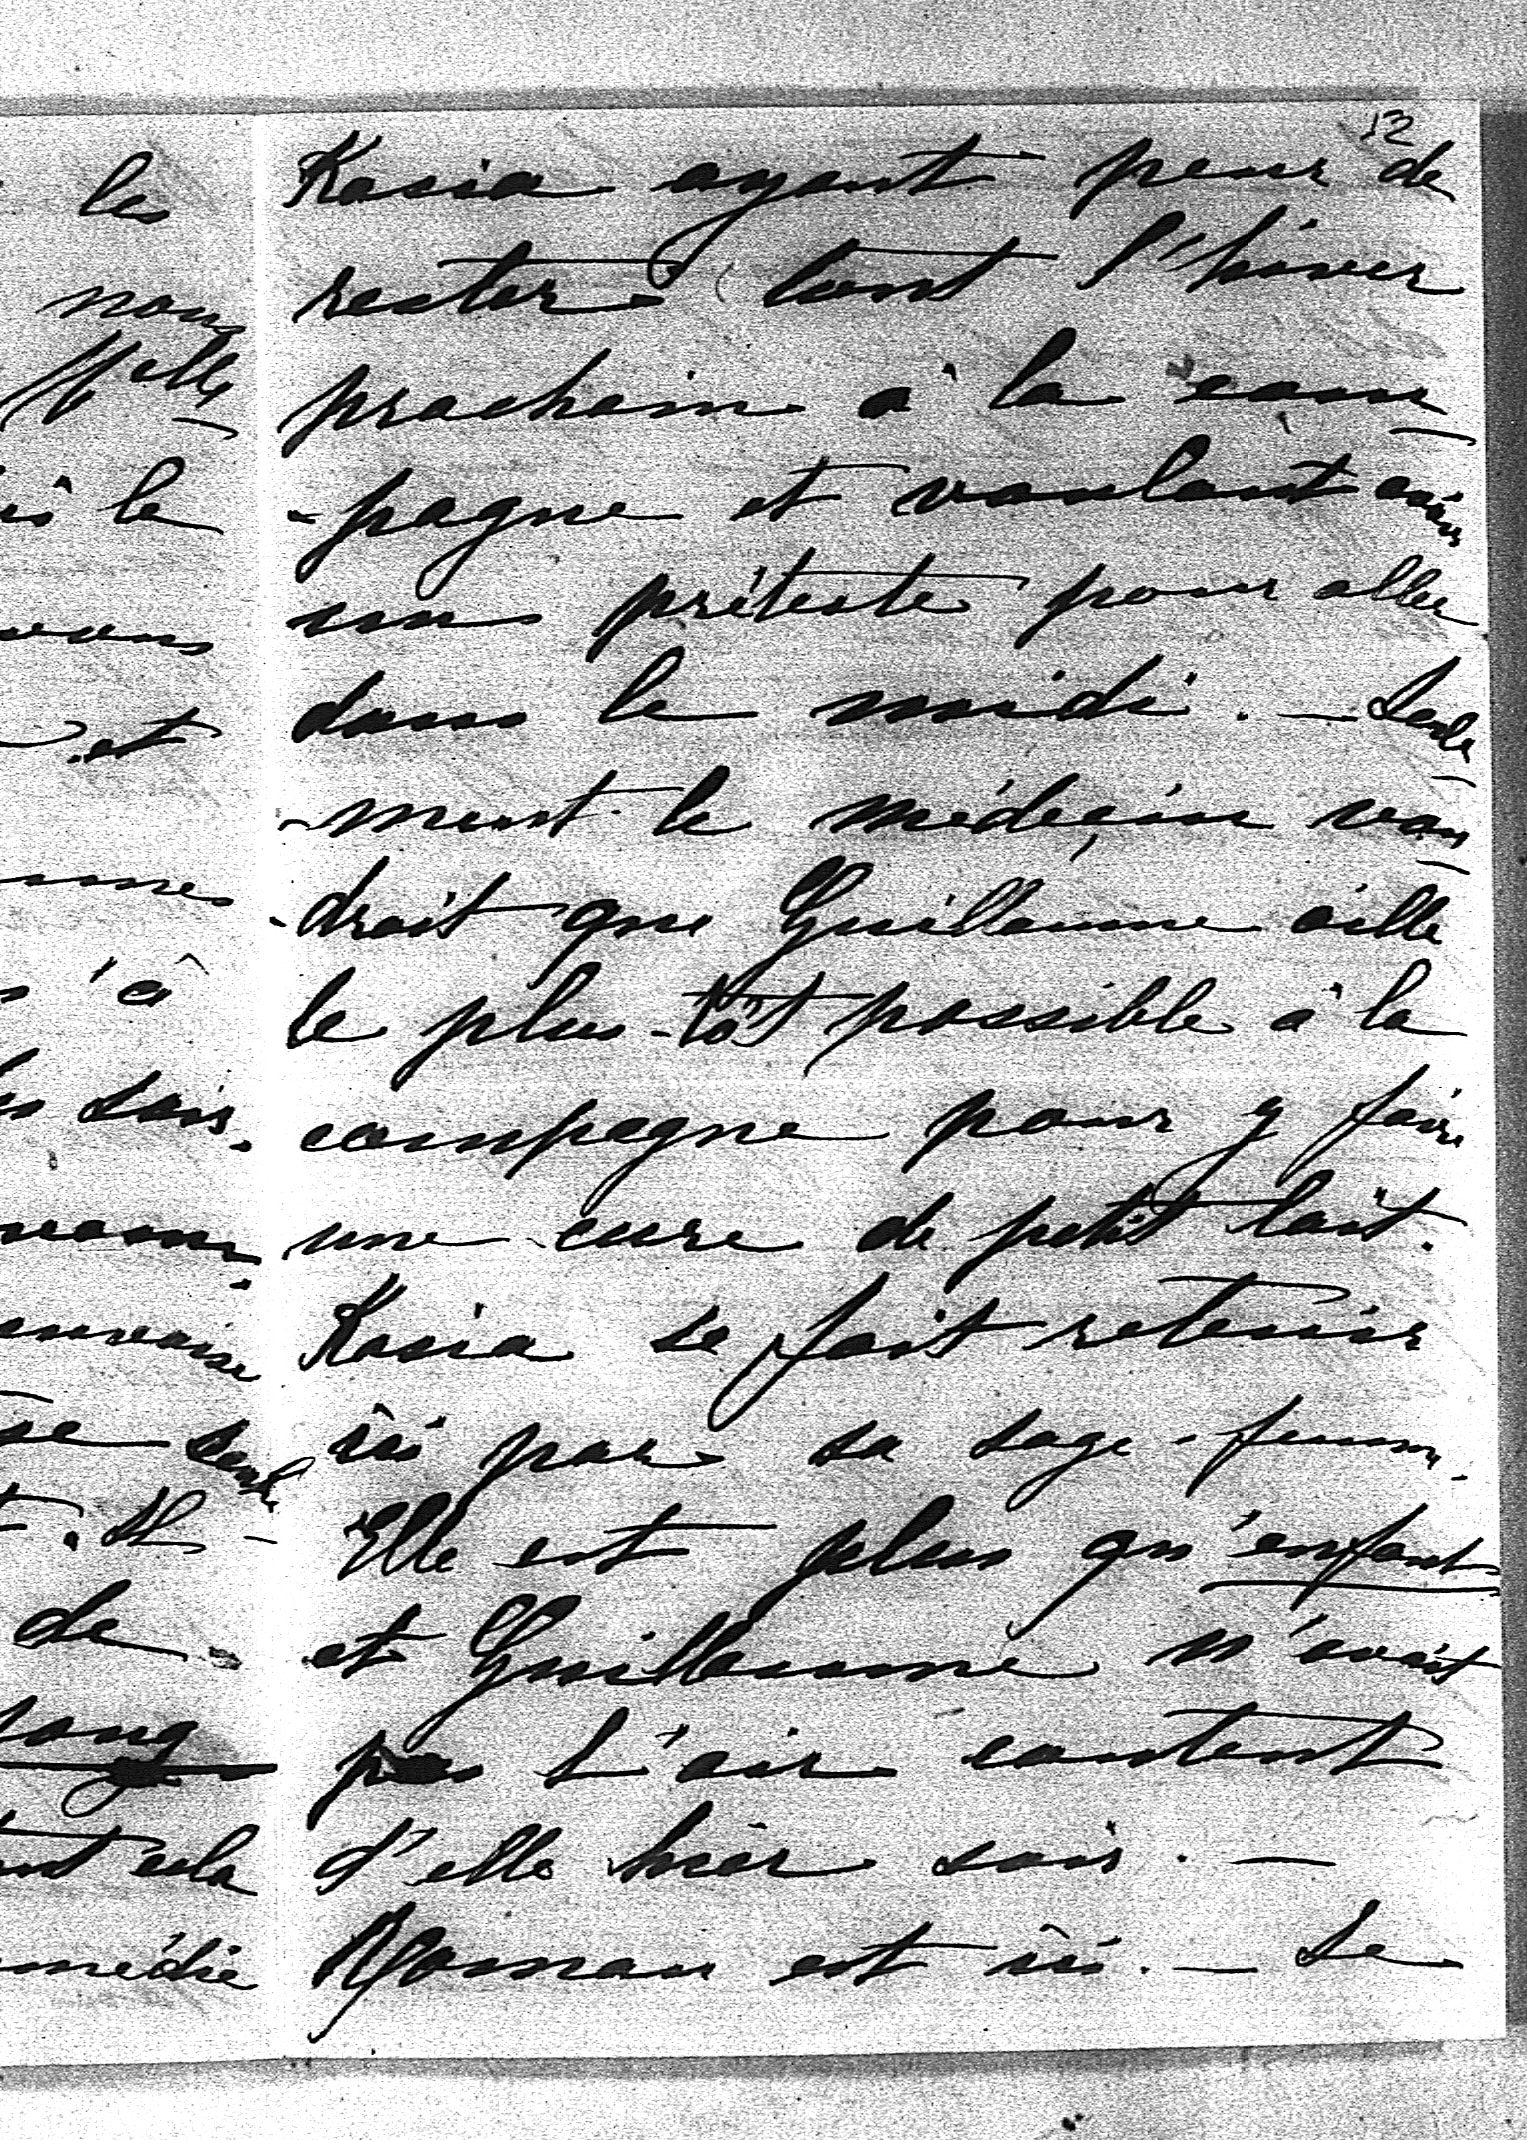 12
Kasia ayant peur de
rester tout l'hiver
prochain à la cam
-pagne et voulant avoir
un préteste pour aller
dans le midi. — Seule
-ment le médecin vou
-drait que Guillaume aille
le plus-tôt possible à la
campagne pour y faire
une cure de petit lait.
Kasia se fait retenir
ici par sa sage-femme.
Elle est plus qu'enfant
et Guillaume n'avait
pas l'air content
d'elle hier soir. —
Roman est ici. — Le
les
nous
le
et
à
soir.
de
sang
cela